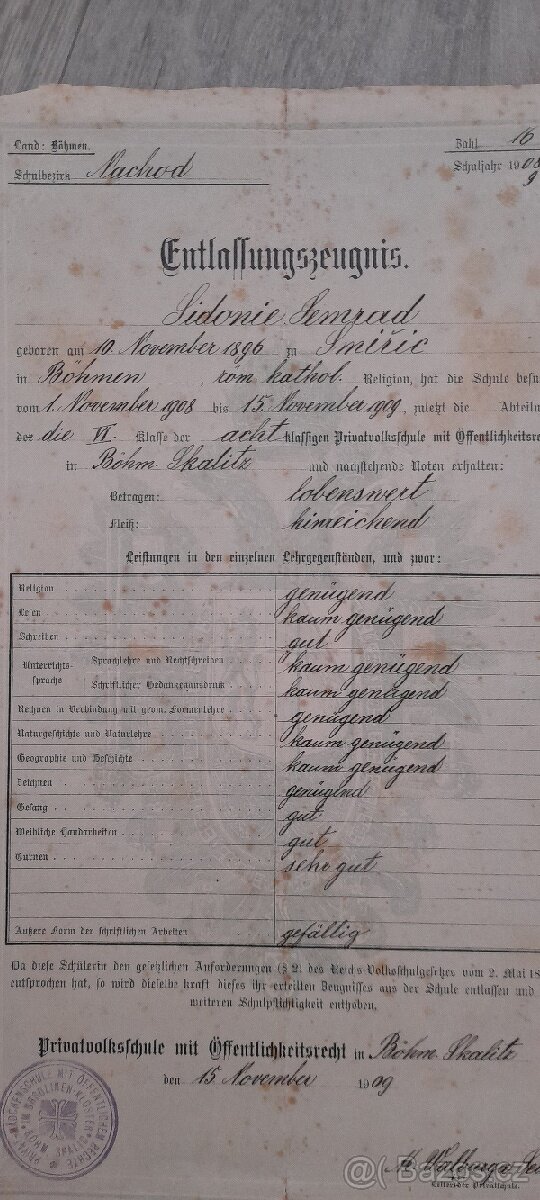 Land: Böhmen. Zahl 16
Schulbezirk Nachod Schuljahr 1908
9
Entlassungszeugnis.
Sidonie Semrád
geboren am 10. November 1896 zu Smiřic
in Böhmen, röm. kathol. Religion, hat die Schule besu
vom 1. November 1908 bis 15. November 1909, zuletzt die Abteilu
der die VI. Klasse der acht klassigen Privatvolksschule mit Öffentlichkeitsre
in Böhm. Skalitz und nachstehende Noten erhalten:
Betragen: lobenswert
Fleiß: hinreichend
Leistungen in den einzelnen Lehrgegenständen, und zwar:
Religion genügend
Lesen kaum genügend
Schreiben gut
Unterrichtssprache Sprachlehre und Rechtschreiben kaum genügend
Schriftlicher Gedankenausdruck kaum genügend
Rechnen in Verbindung mit geom. Formenlehre genügend
Naturgeschichte und Naturlehre kaum genügend
Geographie und Geschichte kaum genügend
Zeichnen genügend
Gesang gut
Weibliche Handarbeiten gut
Turnen sehr gut
Äußere Form der schriftlichen Arbeiten gefällig
Da diese Schülerin den gesetzlichen Anforderungen (§ 2. des Reichs-Volksschulgesetzes vom 2. Mai 18
entsprochen hat, so wird dieselbe kraft dieses ihr erteilten Zeugnisses aus der Schule entlassen und
weiteren Schulpflichtigkeit enthoben.
Privatvolksschule mit Öffentlichkeitsrecht in Böhm. Skalitz
den 15. November 1909
M. Walburga
Leiterin der Privatschule.
Bazos.cz